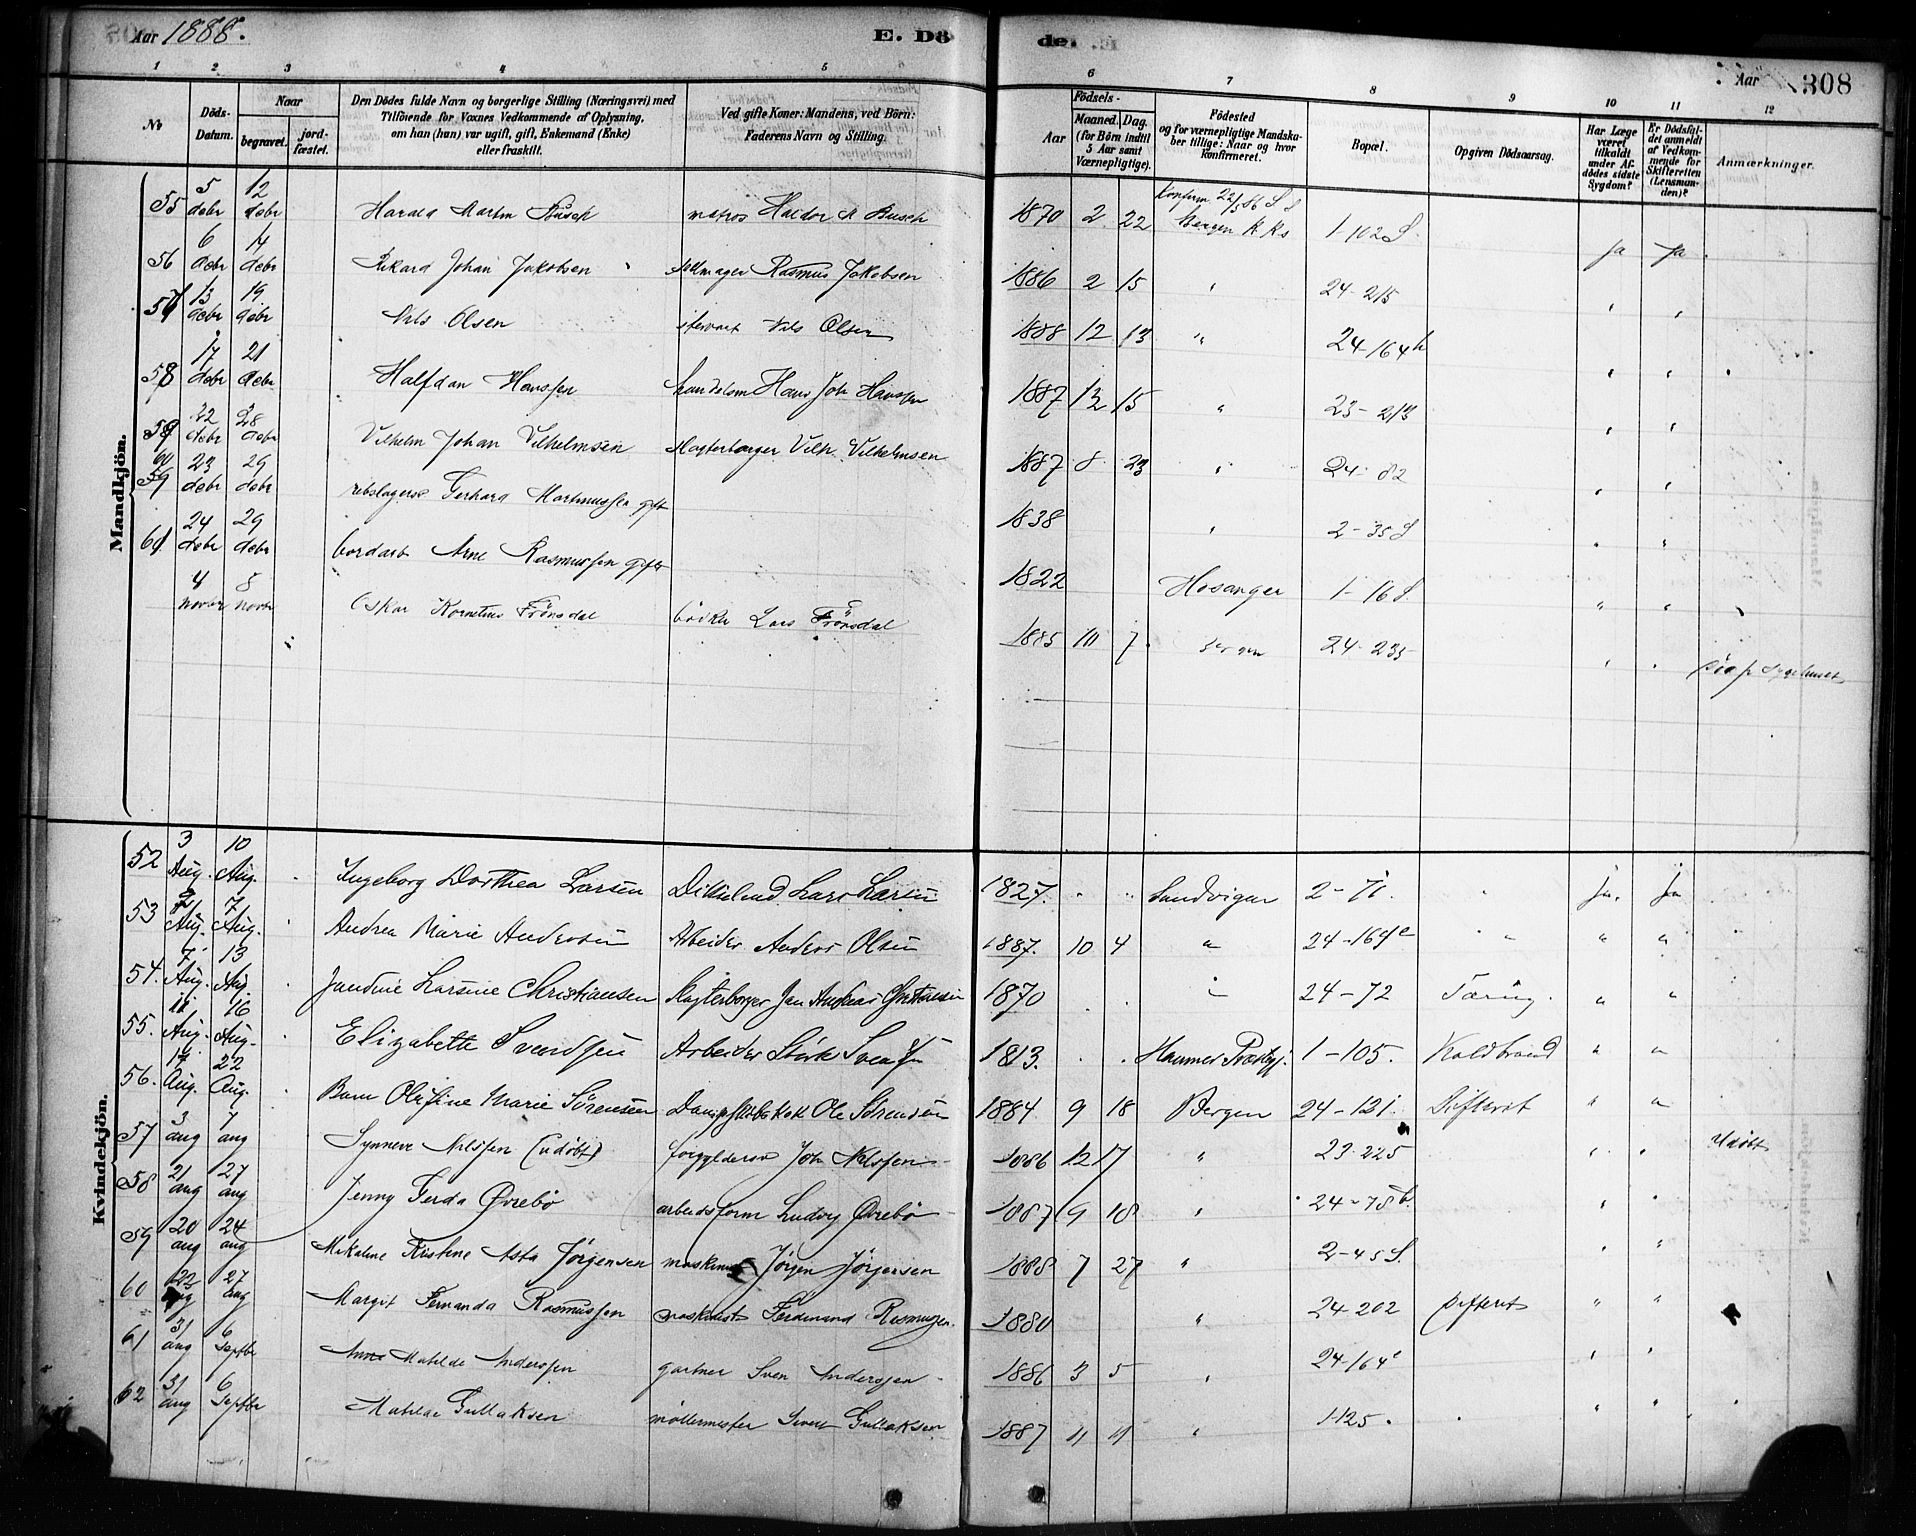 Aar 1888. E. Dö de. Aar 308
1 2 3 4 5 6 7 8 9 10 11 12
No Döds-Datum. Naar begravet. jord-fæstet. Den Dödes fulde Navn og borgerlige Stilling (Næringsvei) med Tilföiende for Voxnes Vedkommende af Oplysning, om han (hun) var ugift, gift, Enkemand (Enke) eller fraskilt. Ved gifte Koner: Mandens, ved Börn: Faderens Navn og Stilling. Födsels- Aar Maaned. Dag. (for Börn indtil 5 Aar samt Værnepligtige). Födested og for værnepligtige Mandskaber tillige: Naar og hvor Konfirmeret. Bopæl. Opgiven Dödsaarsag. Har Læge været tilkaldt under Afdödes sidste Sygdom? Er Dödsfaldet anmeldt af Vedkommende for Skifteretten (Lensmanden)? Anmærkninger.
Mandkjön.
55 5 debr 12 debr Harald Martin Busch matros Haldor M Busch 1870 2 22 Konfirm 22/5 86 Bergen 1-102 S. ja ja
56 6 debr 14 debr Rikard Johan Jakobsen Rasmus Jakobsen 1886 2 15 " 24-215 " "
57 13 debr 19 debr Nils Olsen stervart Nils Olsen 1888 12 13 " 24-164 h " "
58 17 debr 21 debr Halfdan Hanssen handelsm Hans Joh Hanssen 1887 12 15 " 23-213 " "
59 22 debr 28 debr Vilhelm Johan Vilhelmsen Slagterborger Vilh. Vilhelmsen 1887 8 23 " 24-82 " "
60 23 debr 29 debr rebslagersv Gerhard Martinussen gift 1838 " 2-35 S " "
61 24 debr 29 debr bordarb Arne Rasmussen gift 1822 Hosanger 1-16 S. " "
4 novbr 8 novbr Oskar Kornelius Frönsdal bödker Lars Frönsdal 1885 10 7 Bergen 24-235 " "
Kvindekjön.
52 3 Aug. 10 Aug. Ingeborg Dorthea Larsen Lars Larsen 1827. Sandvigen 2-71. " ja. ja
53 2 Aug. 7 Aug. Andrea Marie Andersen Arbeider Anders Olsen 1887. 10 4 " 24-164 e " " "
54. 7 Aug. 13 Aug. Jandine Larsine Christiansen Slagterborger Jan Andreas Christiansen 1870 " 24-72 Tæring. " "
55. 11 Aug. 16 Aug. Elizabeth Svendsen Arbeider Svendsen 1813. Hammer Præstegj. 1-105. Koldbrand " "
56. 17 Aug. 22 Aug. Barn Olefine Marie Sörensen Ole Sörensen 1884 9 18 Bergen 24-121. Difterit " "
57 3 aug 7 aug Synneve Nilssen (udöbt) forgyldersv Joh Nilssen 1886 12 17 " 23-225 " " Udöbt
58 21 aug 27 aug Jenny Gerda Øvrebø arbeidsform Ludvig Øvrebø 1887 9 18 " 24-78 b. " "
59 20 aug 24 aug Mikaline Kristine Asta Jørgensen maskinist Jørgen Jørgensen 1888 7 27 " 2-45 S. " "
60 22 aug 27 aug Margit Fernanda Rasmussen maskinist Ferdinand Rasmussen. 1880 " 24-202 Difterit " "
61 31 aug 6 Septbr Anna Matilde Anderssen gartner Sven Anderssen 1886 3 5 " 24-164 " "
62 31 aug 6 Septbr Matilde Gullaksen möllermester Gullaksen 1887 11 11 " 1-125. " "